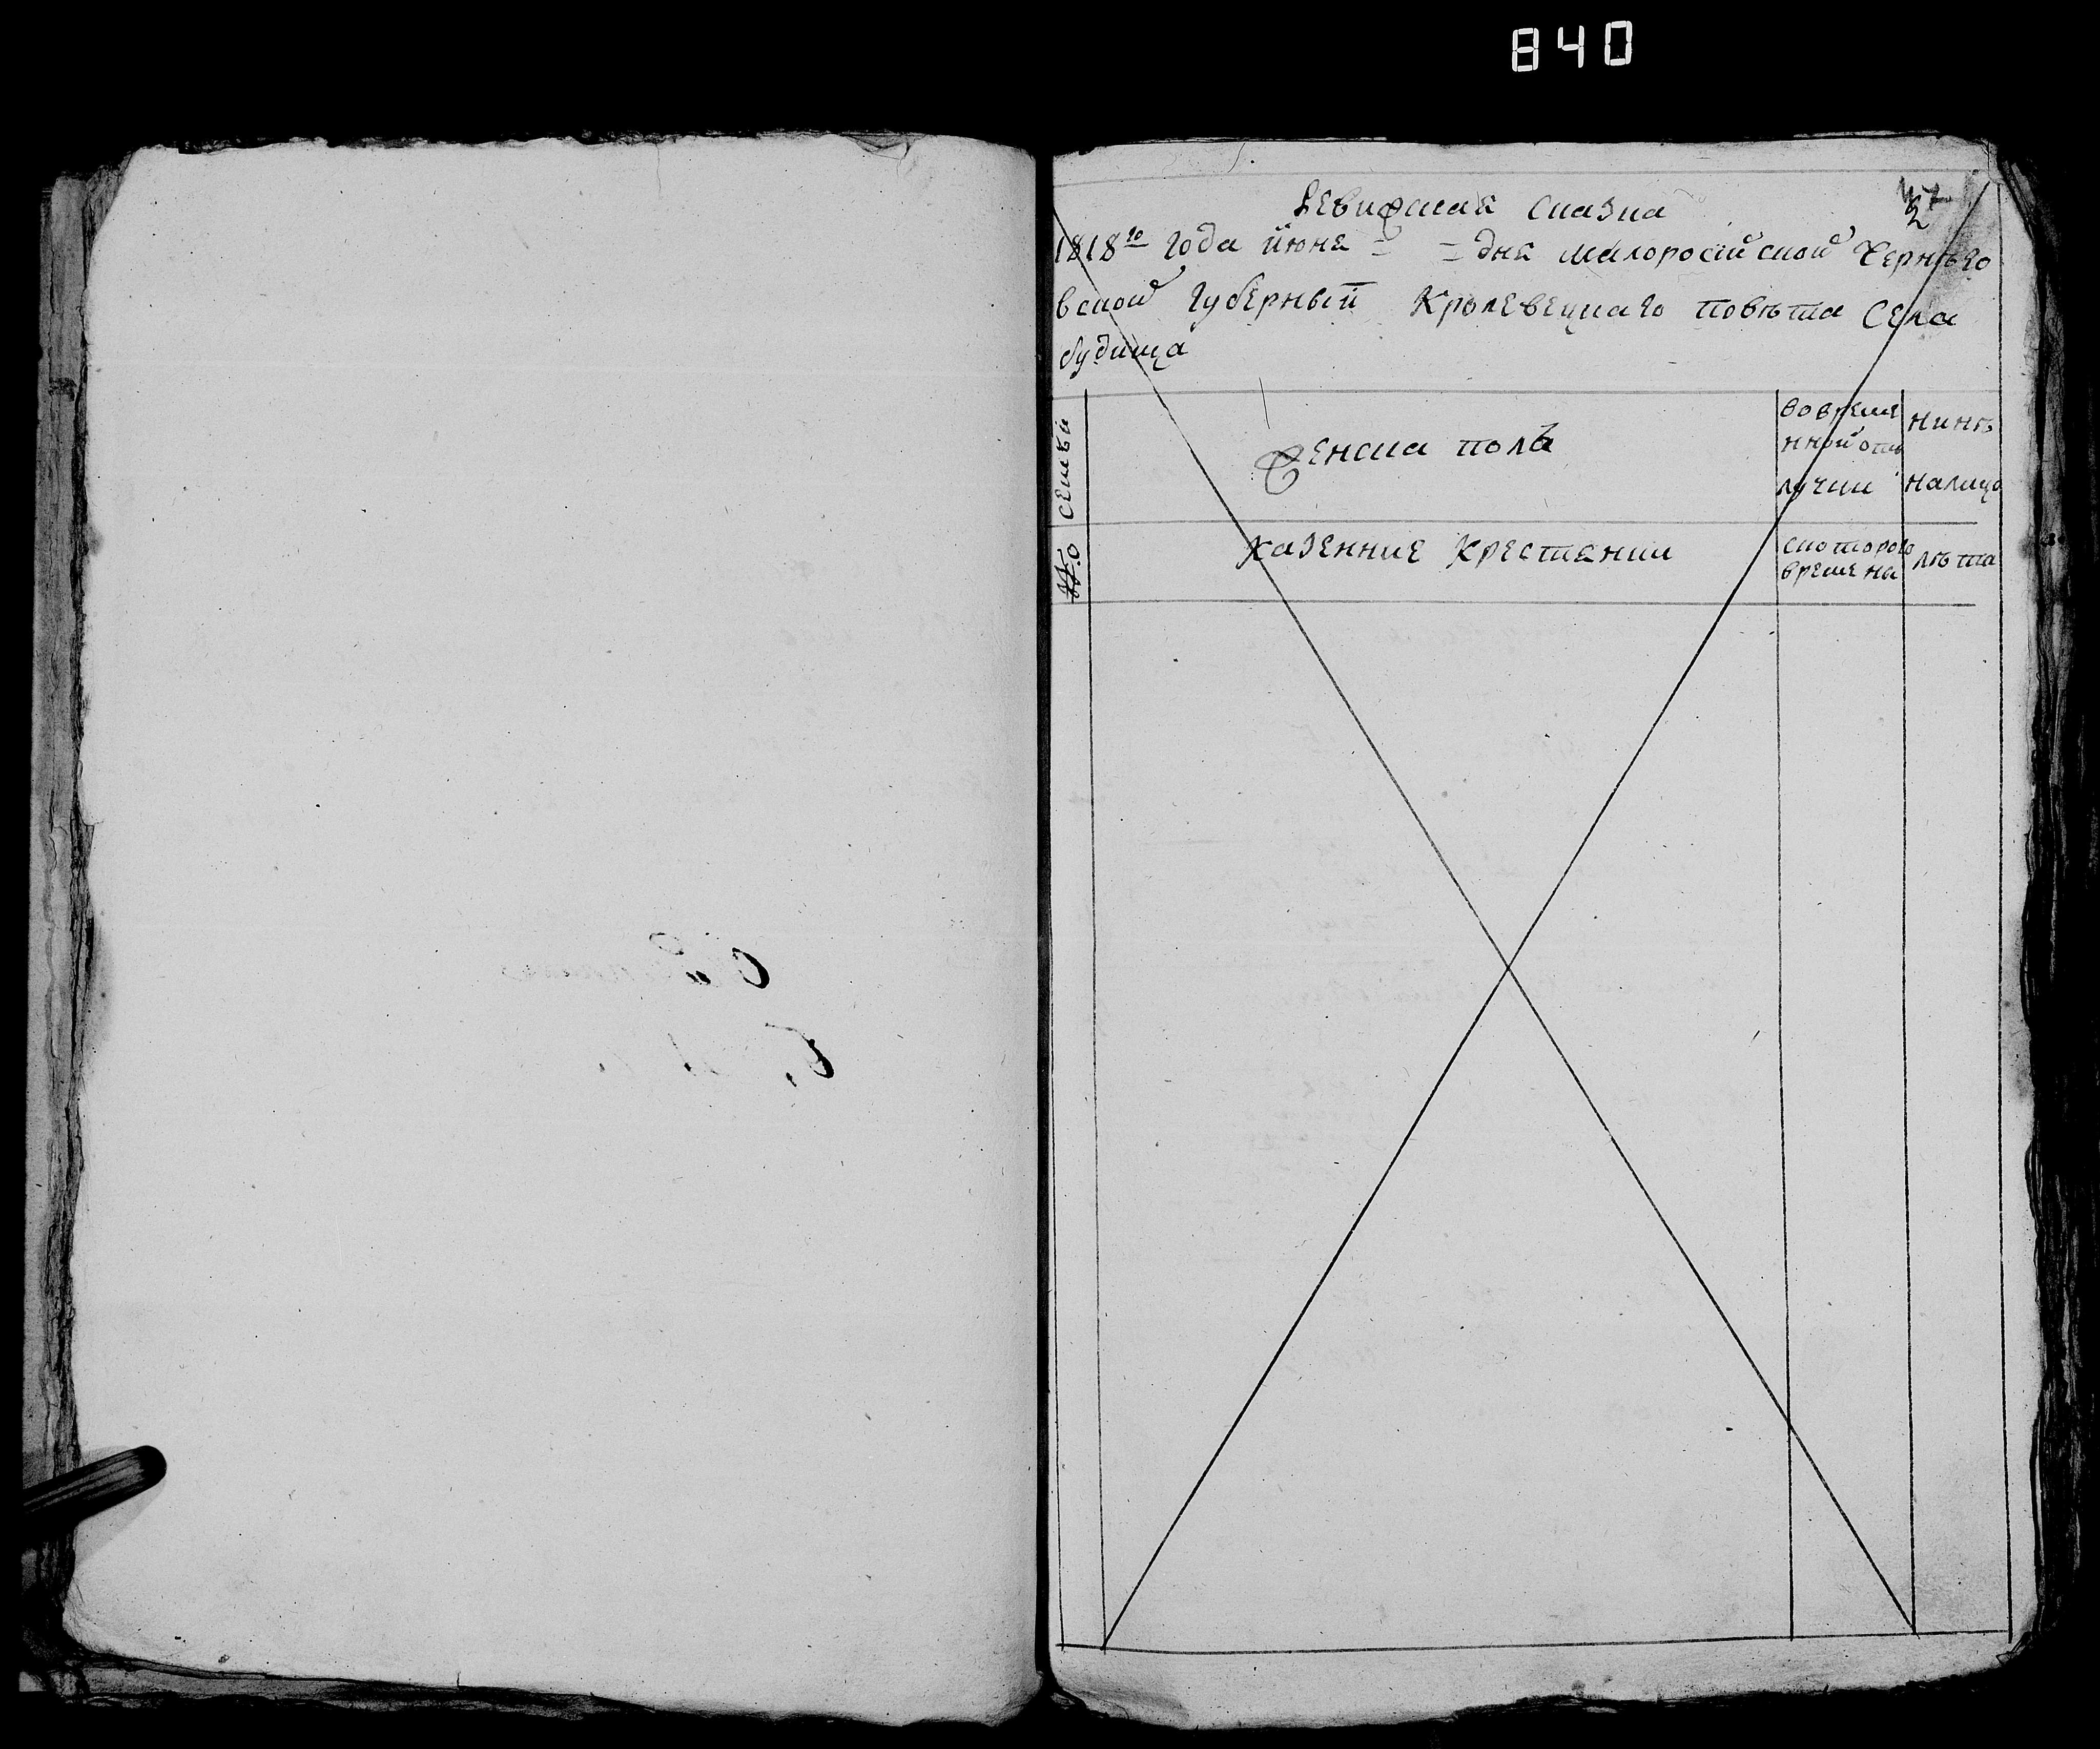 840
Ревизская сказка
1818го года июня = = дня малоросійской Черныго
вской губерный Кролевецкаго повѣта Села
будища
№о семьи
Женска пола
во времен
нной отъ
лучки
нинѣ
налицо
казенние крестяники
с которого
времени
лѣта